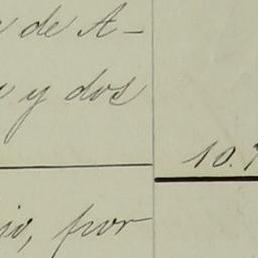 de A-
y dos
10.7
io, por